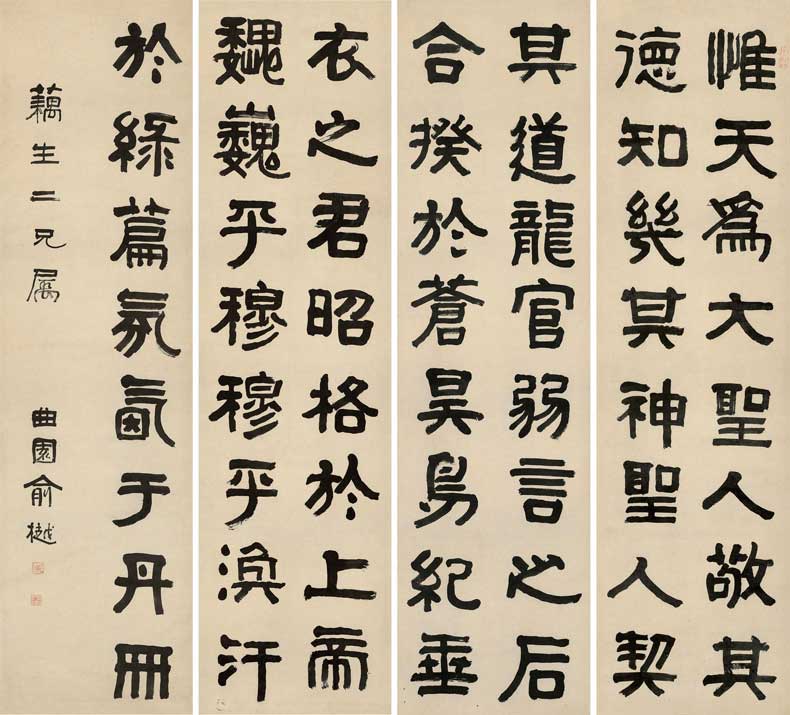 惟天爲大聖人敬其
德知幾其神聖人契
其道龍官弱言之后
合揆於蒼昊鳥紀垂
衣之君昭格於上帝
魏巍乎穆穆乎渙汗
於綠篇氛氳于丹冊
藕生二兄属
曲園俞樾